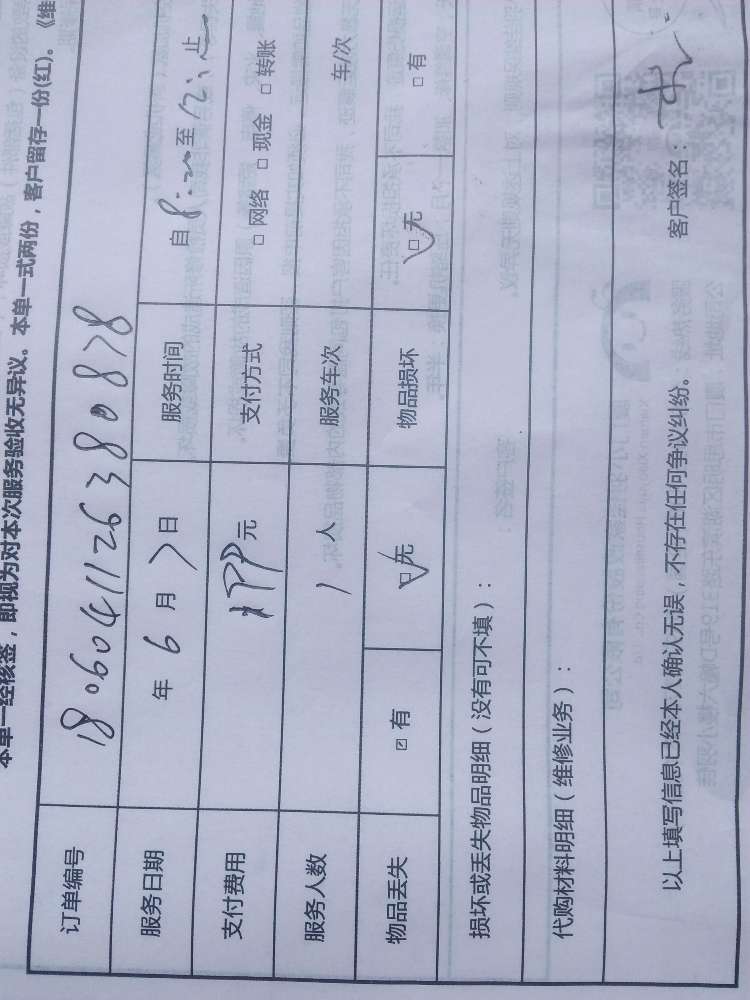 本单一经核签，即视为对本次服务验收无异议。本单一式两份，客户留存一份(红)。《维
订单编号 1806041126380878
服务日期 年 6 月 7 日 服务时间 自 8:00 至 12: 止
支付费用 199 元 支付方式 □ 网络 □ 现金 □ 转账
服务人数 1 人 服务车次 车/次
物品丢失 ☑ 有 □ 无 物品损坏 □ 无 □ 有
损坏或丢失物品明细（没有可不填）：
代购材料明细（维修业务）：
以上填写信息已经本人确认无误，不存在任何争议纠纷。 客户签名：